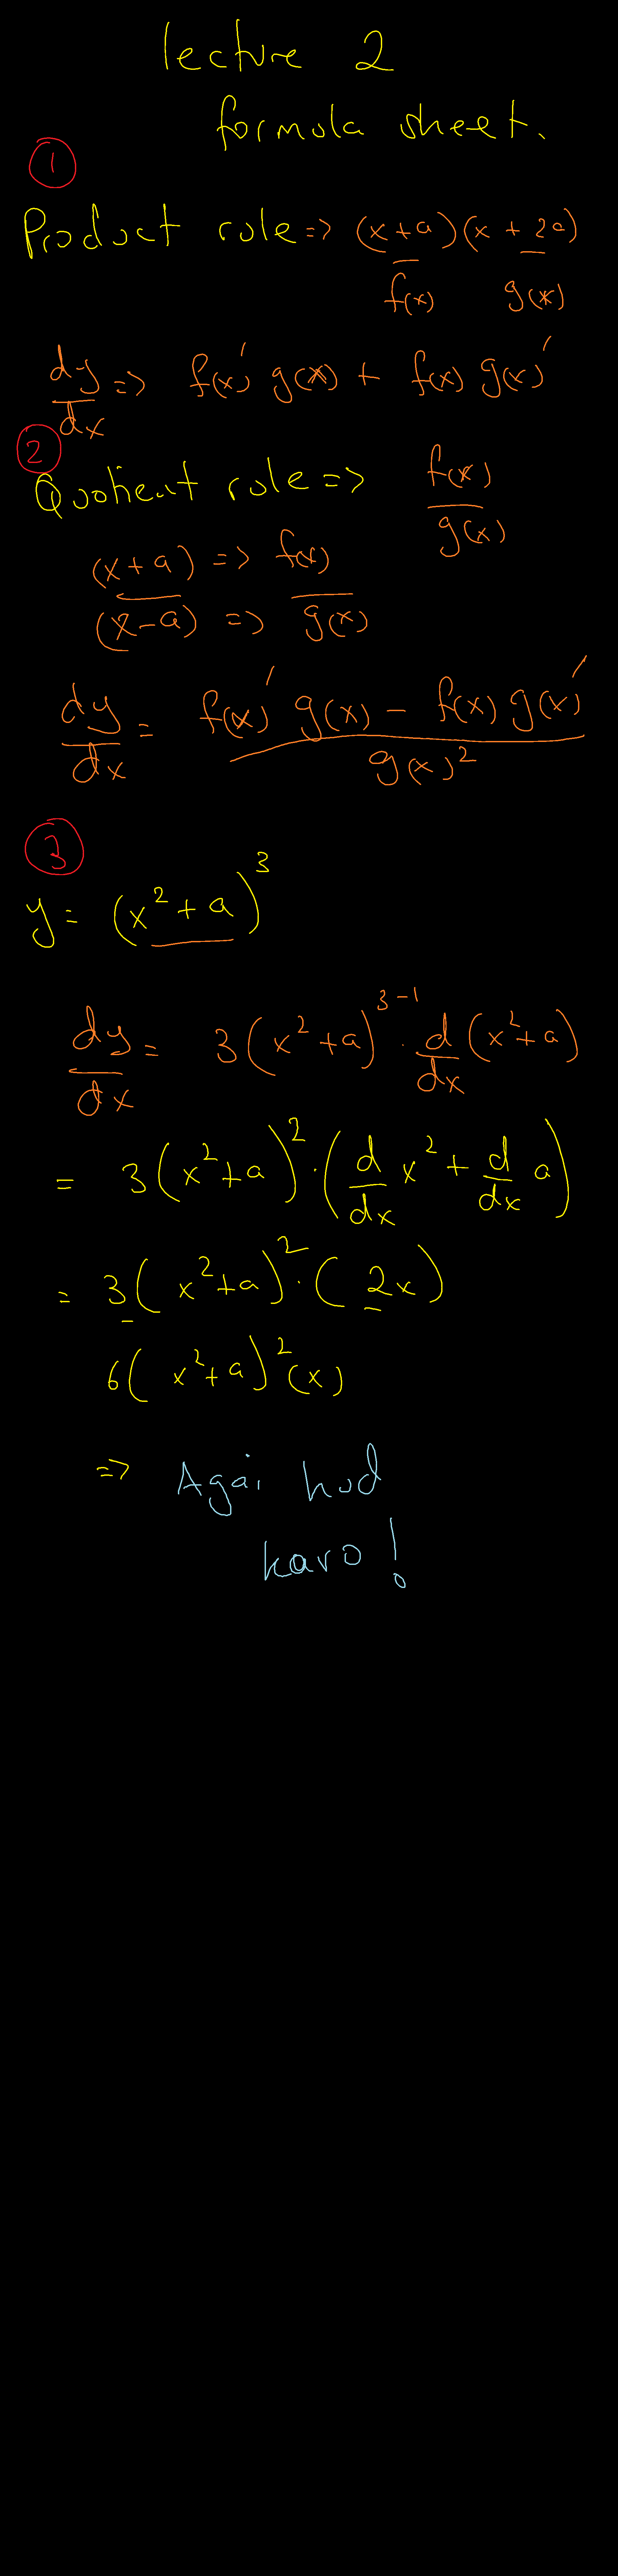 lecture 2
formula sheet.
①
Product rule => (x+a)(x+2a)
f(x) g(x)
dy/dx => f(x)' g(x) + f(x) g(x)'
②
Quotient rule => f(x)/g(x)
(x+a) => f(x)
(x-a) => g(x)
dy/dx = f(x)' g(x) - f(x) g(x)' / g(x)²
③
y = (x²+a)³
dy/dx = 3(x²+a)³⁻¹ · d/dx (x²+a)
= 3(x²+a)² · (d/dx x² + d/dx a)
= 3(x²+a)² · (2x)
6(x²+a)²(x)
=> Agai hud
karo!